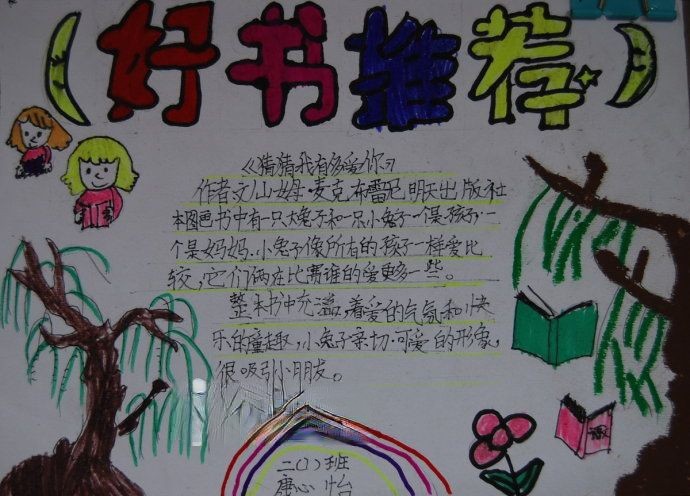 好书推荐
《猜猜我有多爱你》
作者文/山姆·麦克布雷尼 明天出版社
本图画书中有一只大兔子和一只小兔子一个是孩子一
个是妈妈.小兔子像所有的孩子一样爱比
较,它们俩在比赛谁的爱更多一些。
整本书中充溢着爱的气氛和快
乐的童趣,小兔子亲切.可爱的形象,
很吸引小朋友。
二(1)班
唐心怡